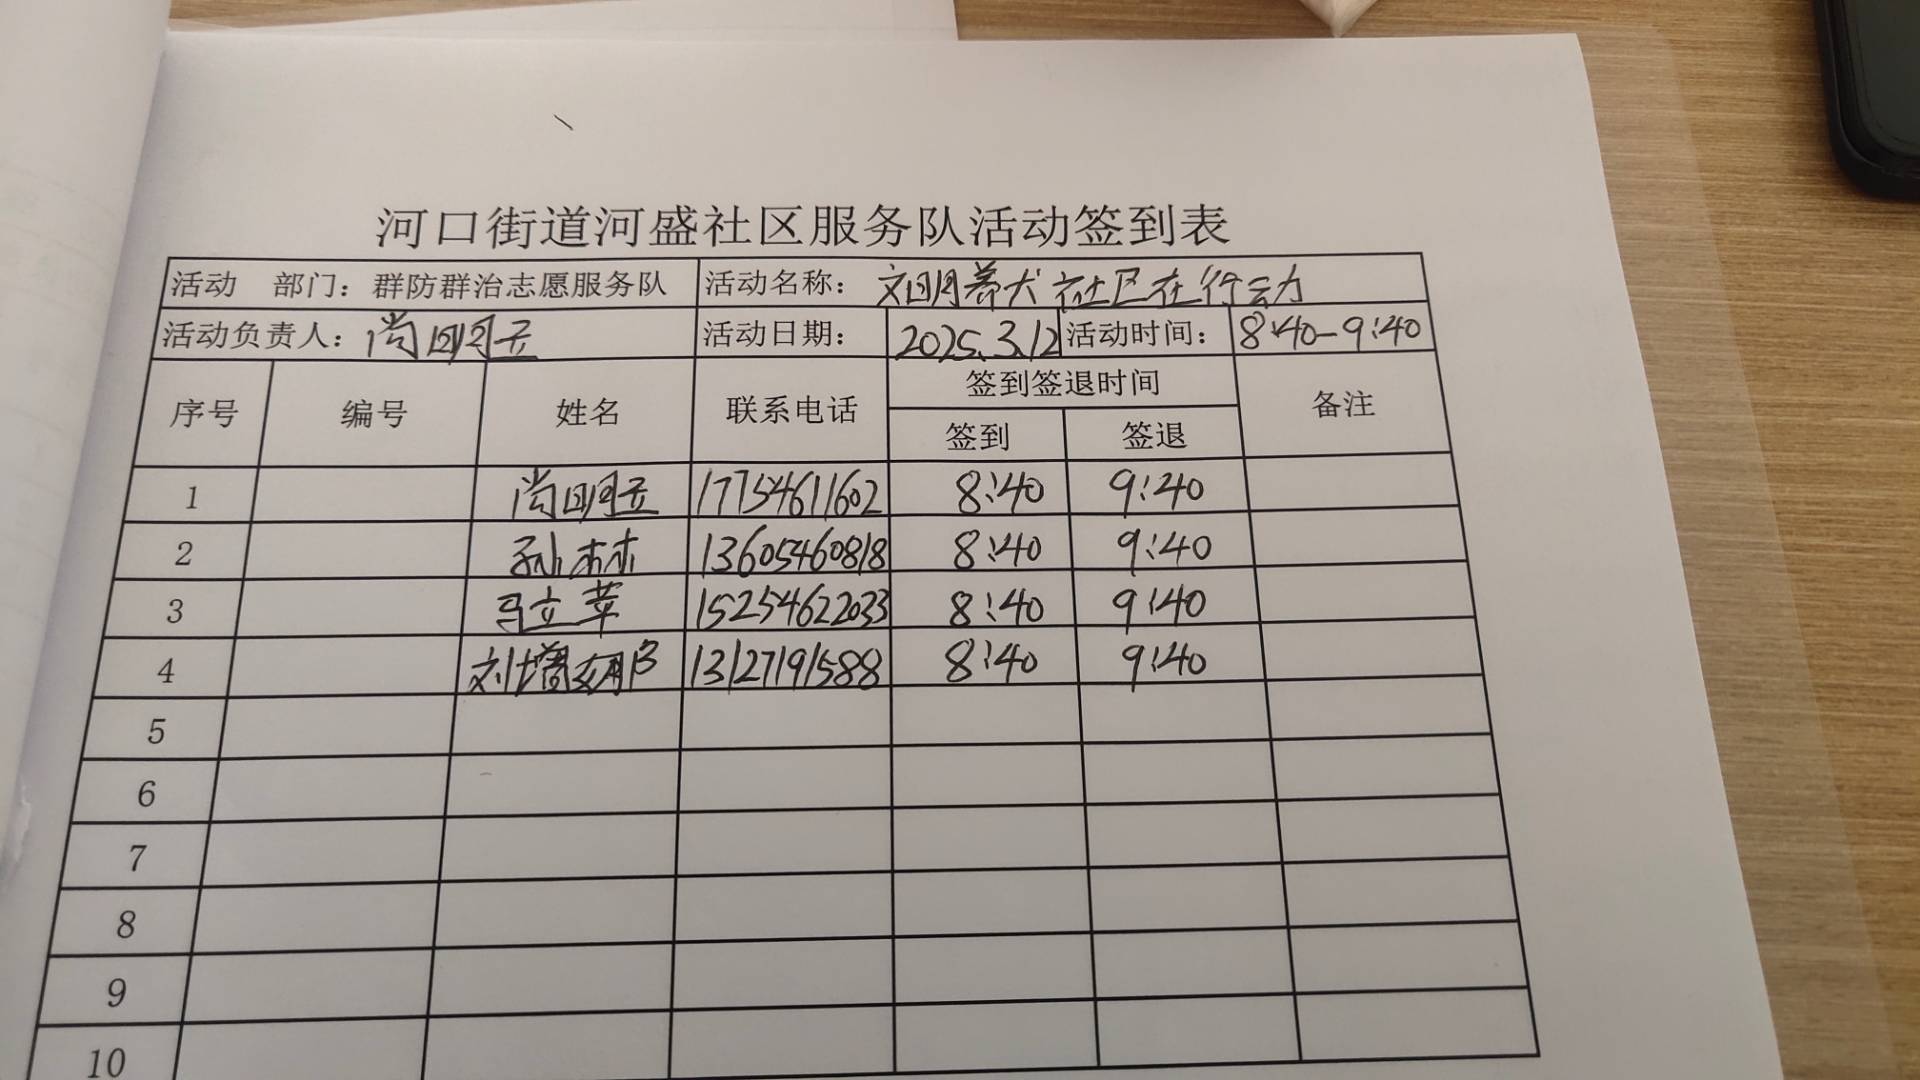 河口街道河盛社区服务队活动签到表
活动 部门：群防群治志愿服务队 活动名称：文明养犬 社区在行动
活动负责人：尚明云 活动日期： 2025.3.12 活动时间： 8:40-9:40
序号 编号 姓名 联系电话 签到签退时间 备注
签到 签退
1 尚明云 17754611602 8:40 9:40
2 孙林 13605460818 8:40 9:40
3 马立苹 15254622033 8:40 9:40
4 刘增 13127191588 8:40 9:40
5
6
7
8
9
10